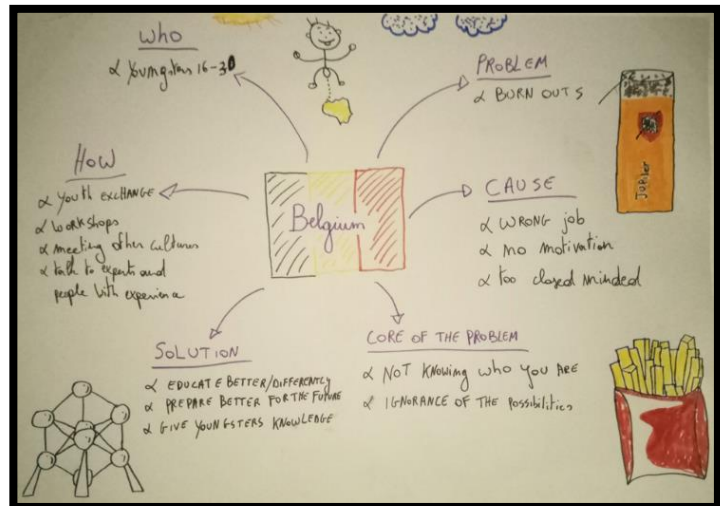 WHO
α Youngsters 16-30
PROBLEM
α BURN OUTS
Jupiler
HOW
α YOUTH EXCHANGE
α WORKSHOPS
α meeting other cultures
α talk to experts and
people with experience
Belgium
CAUSE
α WRONG job
α no motivation
α too closed minded
SOLUTION
α EDUCATE BETTER/DIFFERENTLY
α PREPARE BETTER FOR THE FUTURE
α GIVE YOUNGSTERS KNOWLEDGE
CORE OF THE PROBLEM
α NOT KNOWING WHO YOU ARE
α IGNORANCE OF THE POSSIBILITIES